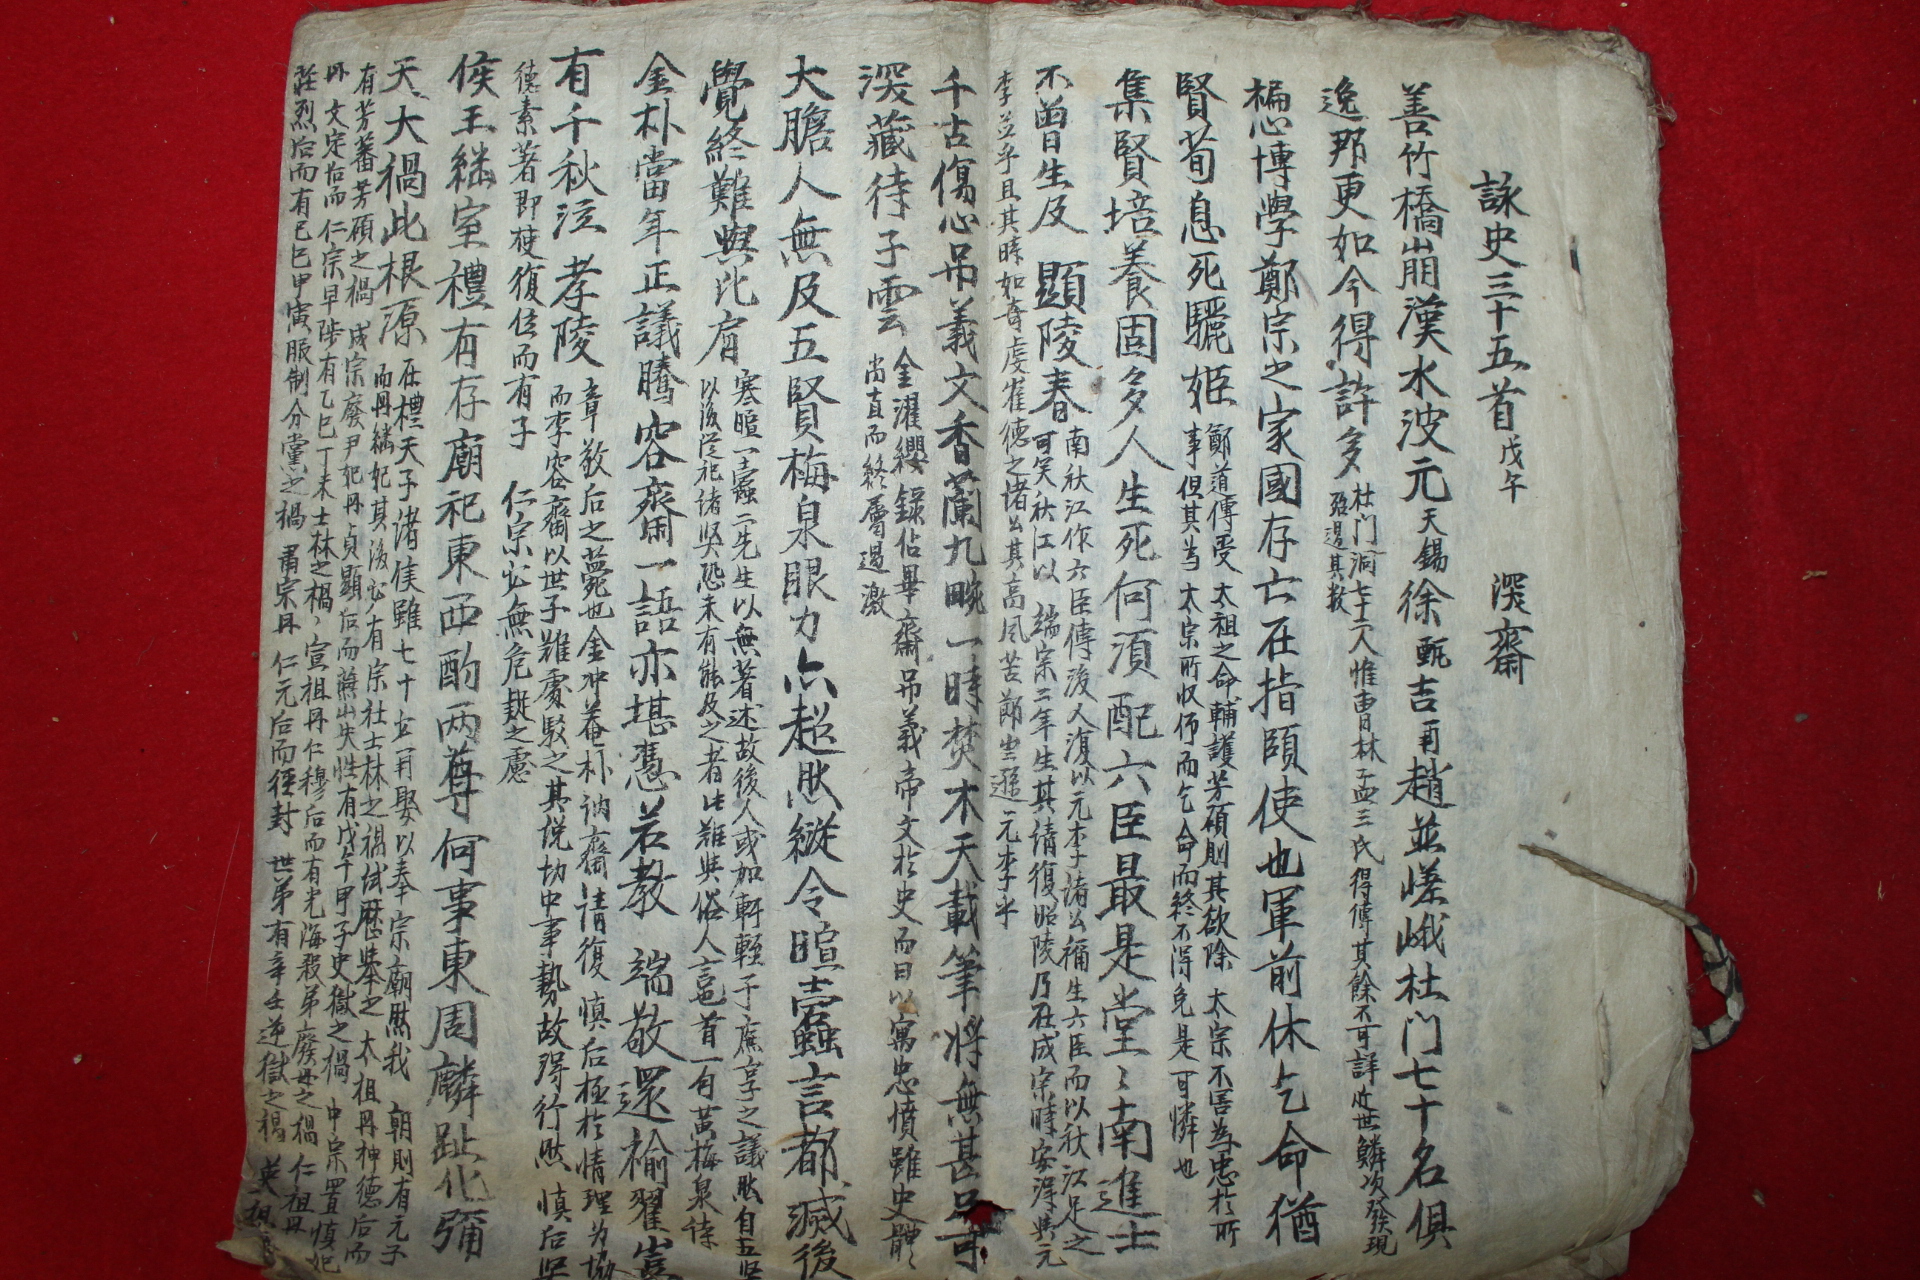 詠史三十五首 戊午 深齋
善竹橋崩漢水波元天錫徐甄吉再趙並嵯峨杜門七十名俱
逸那更如今得許多 杜門洞七十二人惟曺林孟三氏得傳其餘不可詳近世鱗次發現
强過其數
楄悐博學鄭宗之家國存亡在指頤使也軍前休乞命猶
賢荀息死驪姬 鄭道傳受 太祖之命輔護芳碩則其欲除 太宗不害為忠於所
事但其当 太宗所収俘而乞命而終不得免是可憐也
集賢培養固多人生死何須配六臣最是堂〻南進士
不曾生及 顯陵春 南秋江作六臣傳後人復以元李諸公稱生六臣而以秋江足之
可笑秋江以 端宗二年生其請復昭陵乃在成宗時安得與元
李並乎且其時如奇虔崔德之諸公其高風苦節豈遜元李乎
千古傷心吊義文香蘭九畹一時焚木天載筆將無甚只可
深藏待子雲 金濯纓錄佔畢齋吊義帝文於史而曰以寓忠憤雖史體
尚直而終屬過激
大膽人無及五賢梅泉眼力亦超然縱令暄蠹言都滅後
覺終難與比肩 寒暄一蠹二先生以無著述故後人或加軒輊于廡享之議然自五賢
以後從祀諸賢恐未有能及之者此難與俗人言也首一句黃梅泉詩
金朴當年正議騰容齋一語亦堪憑若教 端敬還褕翟豈
有千秋泣 孝陵 章敬后之薨也金冲菴朴訥齋請復 愼后極於情理為協
而李容齋以世子難處駁之其說切中事勢故得行然 愼后堅
德素著即使復位而有子 仁宗必無危疑之慮
侯王継室禮有存廟祀東西酌兩尊何事東周麟趾化彌
天大禍此根源 在禮天子諸侯雖七十必再娶以奉宗廟然我 朝則有元子
而再継妃其後必有宗社士林之禍試歷擧之 太祖再神德后而
有芳蕃芳碩之禍 成宗廢尹妃再貞顯后而燕山失性有戊午甲子史獄之禍 中宗置愼妃
再 文定后而仁宗早陟有乙巳丁未士林之禍、宣祖再仁穆后而有光海殺弟廢母之禍 仁祖再
莊烈后而有己巳甲寅服制分黨之禍 肅宗再 仁元后而徑封 世弟有辛壬逆獄之禍 英祖